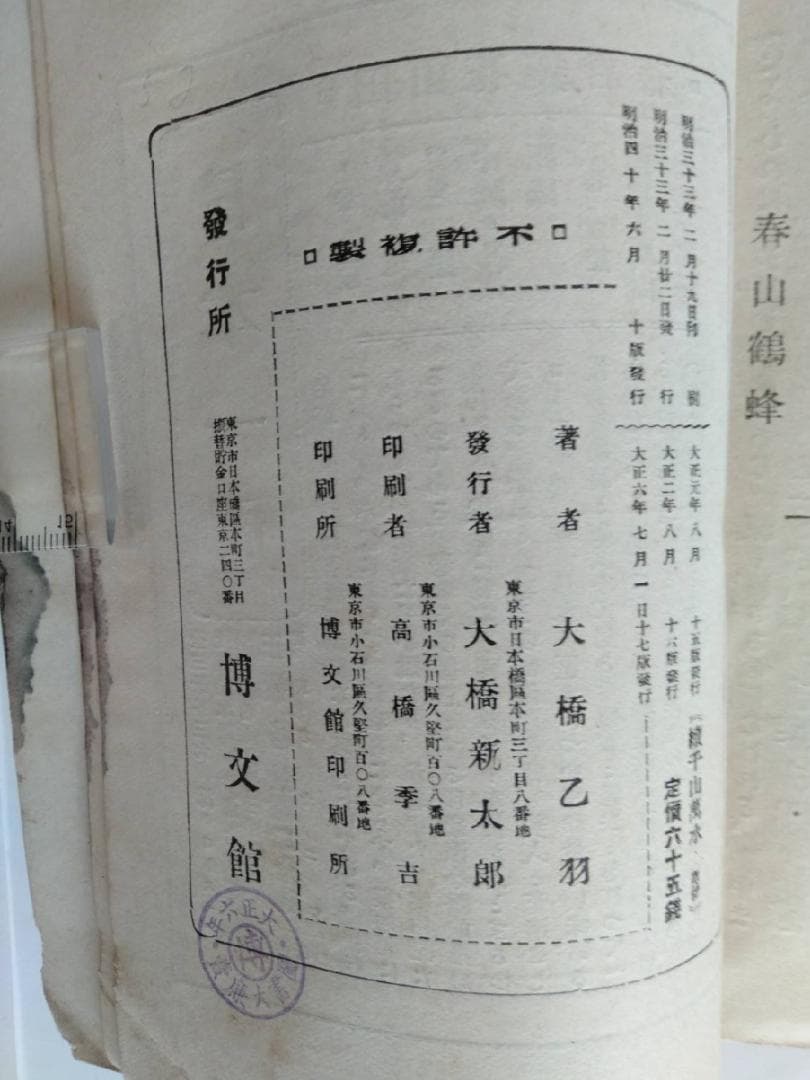 春山鶴蜂
明治三十三年二月十九日印刷
明治三十三年二月廿二日發行
明治四十年六月十版發行
大正元年八月十五版發行
大正二年八月十六版發行
大正六年七月一日十七版發行
續千山萬水
定價六十五錢
不許複製
著者 大橋乙羽
東京市日本橋區本町三丁目八番地
發行者 大橋新太郎
東京市小石川區久堅町百〇八番地
印刷者 高橋季吉
東京市小石川區久堅町百〇八番地
印刷所 博文館印刷所
發行所
東京市日本橋區本町三丁目
振替貯金口座東京二四〇番
博文館
大正六年
12